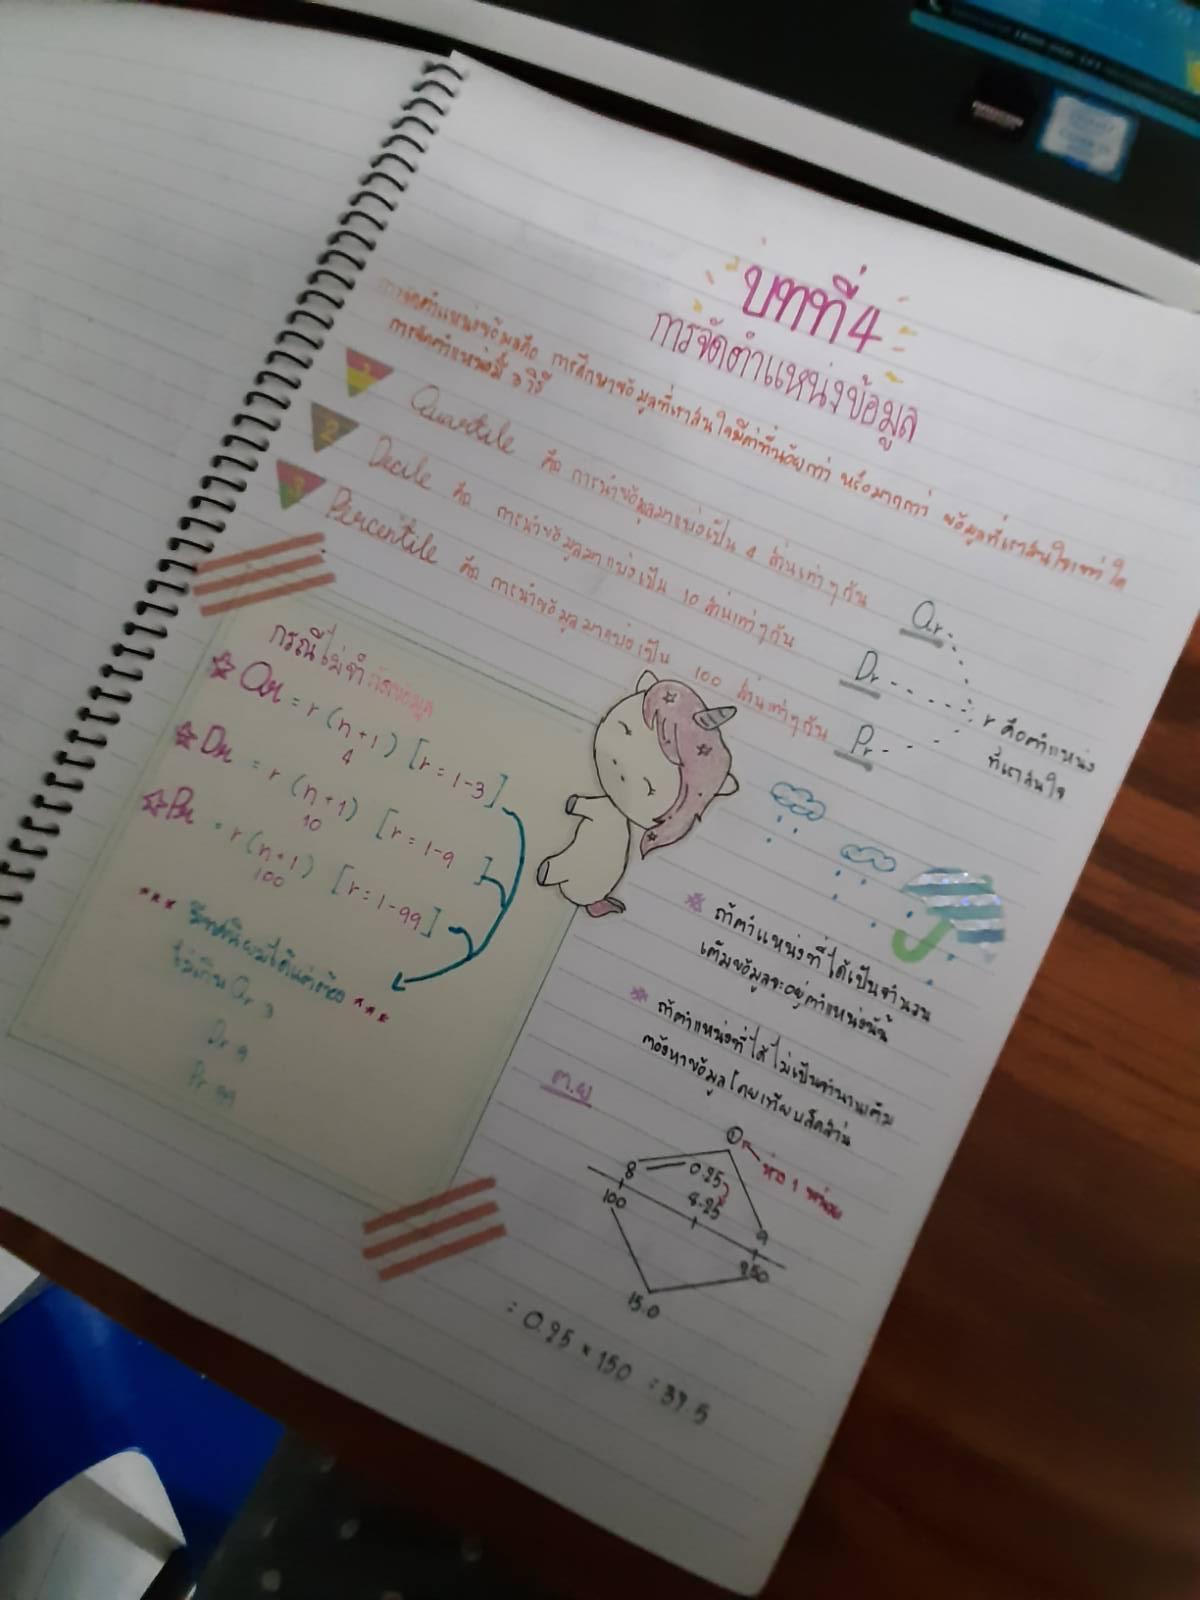 บทที่ 4
การจัดตำแหน่งข้อมูล
การจัดตำแหน่งข้อมูลคือ การศึกษาข้อมูลที่เราสนใจมีค่าที่น้อยกว่า หรือมากกว่า ข้อมูลที่เราสนใจเท่าใด
การจัดตำแหน่งมี 3 วิธี
1 Quartile คือ การนำข้อมูลมาแบ่งเป็น 4 ส่วนเท่าๆกัน Qr
2 Decile คือ การนำข้อมูลมาแบ่งเป็น 10 ส่วนเท่าๆกัน Dr
3 Percentile คือ การนำข้อมูลมาแบ่งเป็น 100 ส่วนเท่าๆกัน Pr
r คือตำแหน่ง
ที่เราสนใจ
กรณีไม่จำกัดข้อมูล
Qr = r (n+1) [r = 1-3]
4
Dr = r (n+1) [r = 1-9]
10
Pr = r (n+1) [r = 1-99]
100
ไม่เกิน Qr 3
Dr 9
Pr 99
ถ้าตำแหน่งที่ได้เป็นจำนวน
เต็มข้อมูลจะอยู่ตำแหน่งนั้น
ถ้าตำแหน่งที่ได้ไม่เป็นจำนวนเต็ม
ต้องหาข้อมูลโดยเทียบสัดส่วน
ต.ย
1 ห่าง 1 หน่วย
8 0.25
8.25 9
100 250
150
= 0.25 × 150 = 37.5